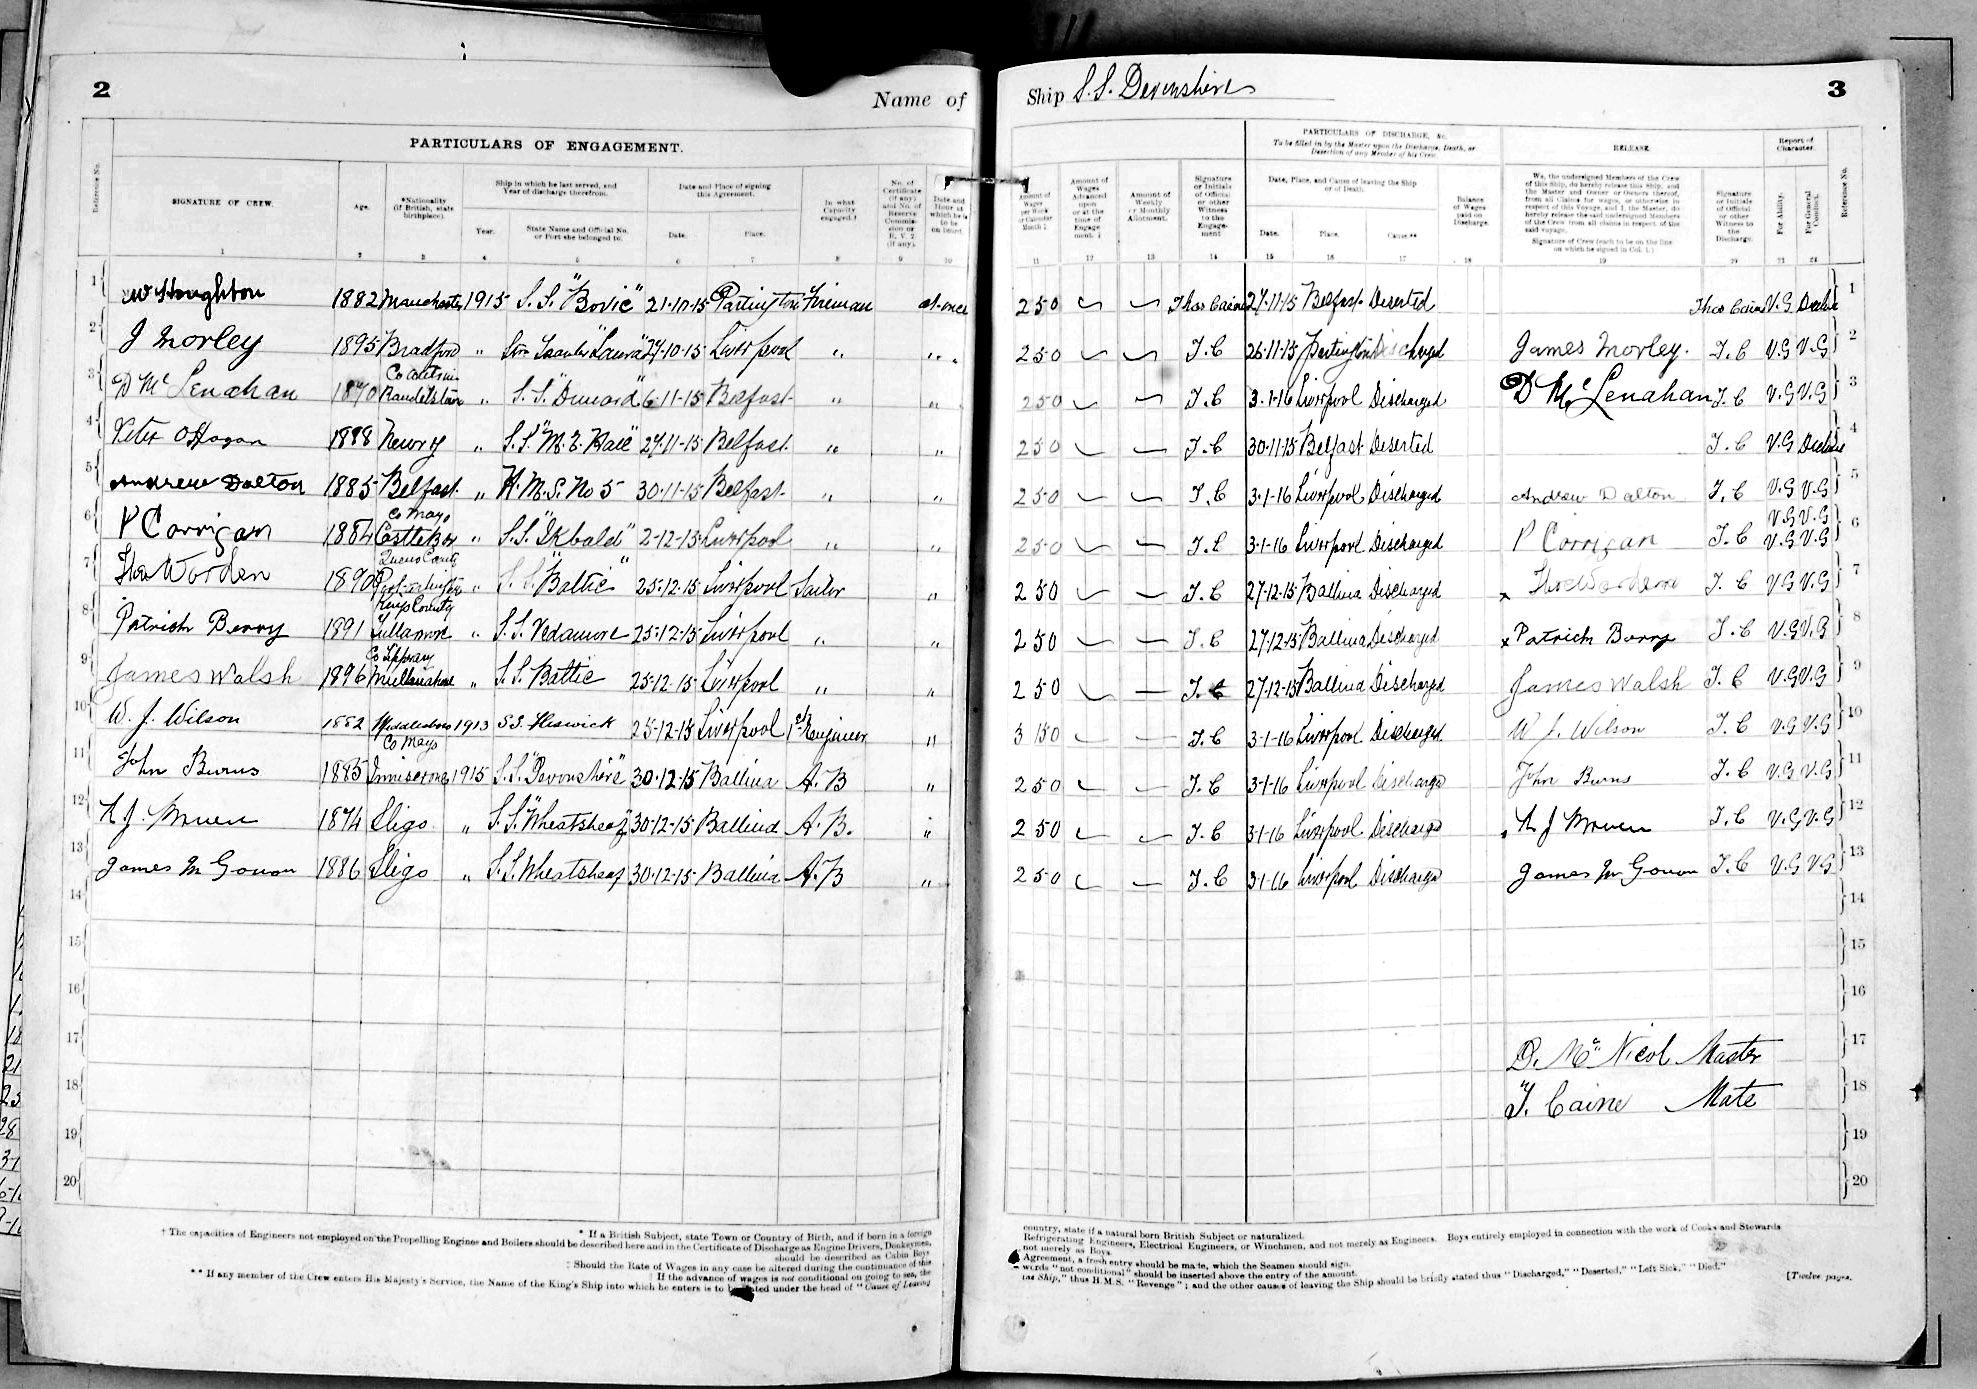 2
Name of
PARTICULARS OF ENGAGEMENT.
Reference No.
SIGNATURE OF CREW.
Age.
*Nationality (if British, state birthplace).
Ship in which he last served, and Year of discharge therefrom.
Year.
State Name and Official No. or Port she belonged to.
Date and Place of signing this Agreement.
Date.
Place.
In what Capacity engaged.†
No. of Certificate (if any) and No. of Reserve Commission or R.V.2 (if any).
Date and Hour at which he is to be on board
1 2 3 4 5 6 7 8 9 10
1 W Houghton 1882 Manchester 1915 S.S. "Bovic" 21-10-15 Partington Fireman at once
2 J Morley 1895 Bradford " "Laura" 27-10-15 Liverpool " "
Co Antrim
3 D McLenahan 1870 Randelstown " S.S. "Dunard" 6-11-15 Belfast "  "
4 Peter O'Hagan 1888 Newry " S.S "M.E. " 27-11-15 Belfast " "
5 Andrew Dalton 1885 Belfast " H.M.S. No 5 30-11-15 Belfast " "
Co Mayo
6 P Corrigan 1884 Castlebar " S.S. "Ikbald" 2-12-15 Liverpool " "
Queens County
7 Thos Worden 1890 Portarlington " S.S. "Baltic" 25-12-15 Liverpool Sailor "
Kings County
8 Patrick Berry 1891 Tullamore " S.S. Vedamore 25-12-15 Liverpool " "
Co Tipperary
9 James Walsh 1896 Mullinahone " S.S. Baltic 25-12-15 Liverpool " "
10 W. J. Wilson 1882 Middlesboro 1913 S.S. Heswick 25-12-15 Liverpool 1st Engineer "
Co Mayo
11 John Burns 1885 Inniscrone 1915 S.S. "Devonshire" 30-12-15 Ballina A.B "
12 1874 Sligo " S.S. "Wheatsheaf" 30-12-15 Ballina A.B. "
13 James Mc Gowan 1886 Sligo " S.S. Wheatsheaf 30-12-15 Ballina A.B "
14
15
16
17
18
19
20
* If a British Subject, state Town or Country of Birth, and if born in a foreign
† The capacities of Engineers not employed on the Propelling Engines and Boilers should be described here and in the Certificate of Discharge as Engine Drivers, Donkeymen,
should be described as Cabin Boys
‡ Should the Rate of Wages in any case be altered during the continuance of this
If the advance of wages is not conditional on going to sea, the
** If any member of the Crew enters His Majesty's Service, the Name of the King's Ship into which he enters is to be stated under the head of "Cause of Leaving
Ship S.S. Devonshire
3
Amount of Wages per Week or Calendar Month ‡
Amount of Wages Advanced upon or at the time of Engagement. ‡
Amount of Weekly or Monthly Allotment.
Signature or Initials of Official or other Witness to the Engagement
PARTICULARS OF DISCHARGE, &c.
To be filled in by the Master upon the Discharge, Death, or Desertion of any Member of his Crew.
Date, Place, and Cause of leaving the Ship or of Death.
Date.
Place.
Cause.**
Balance of Wages paid on Discharge.
RELEASE
We, the undersigned Members of the Crew of this Ship, do hereby release this Ship, and the Master and Owner or Owners thereof, from all Claims for wages, or otherwise in respect of this Voyage, and I, the Master, do hereby release the said undersigned Members of the Crew from all claims in respect of the said voyage.
Signature of Crew (each to be on the line on which he signed in Col. 1.)
Signature or Initials of Official or other Witness to the Discharge.
Report of Character.
For Ability.
For General Conduct.
Reference No.
11 12 13 14 15 16 17 18 19 20 21 22
2 5 0 Thos Caine 27-11-15 Belfast Deserted Thos Caine V.G Decline 1
2 5 0 T.C 26-11-15 Partington Discharged James Morley. T.C V.G V.G 2
2 5 0 T.C 3-1-16 Liverpool Discharged D McLenahan T.C V.G V.G 3
2 5 0 T.C 30-11-15 Belfast Deserted T.C V.G Decline 4
2 5 0 T.C 3-1-16 Liverpool Discharged Andrew Dalton T.C V.G V.G 5
V.G V.G
2 5 0 T.C 3-1-16 Liverpool Discharged P Corrigan T.C V.G V.G 6
2 5 0 T.C 27-12-15 Ballina Discharged x Thos Worden T.C V.G V.G 7
2 5 0 T.C 27-12-15 Ballina Discharged x Patrick Berry T.C V.G V.G 8
2 5 0 T.C 27-12-15 Ballina Discharged James Walsh T.C V.G V.G 9
3 15 0 T.C 3-1-16 Liverpool Discharged W J. Wilson T.C V.G V.G 10
2 5 0 T.C 3-1-16 Liverpool Discharged John Burns T.C V.G V.G 11
2 5 0 T.C 3-1-16 Liverpool Discharged T.C V.G V.G 12
2 5 0 T.C 3-1-16 Liverpool Discharged James Mc Gowan T.C V.G V.G 13
14
15
16
17
D. McNicol Master
18
T. Caine Mate
19
20
country, state if a natural born British Subject or naturalized.
Refrigerating Engineers, Electrical Engineers, or Winchmen, and not merely as Engineers. Boys entirely employed in connection with the work of Cooks and Stewards
not merely as Boys.
Agreement, a fresh entry should be made, which the Seamen should sign.
words "not conditional" should be inserted above the entry of the amount.
the Ship," thus H.M.S. "Revenge"; and the other causes of leaving the Ship should be briefly stated thus "Discharged," "Deserted," "Left Sick," "Died."
[Twelve pages.